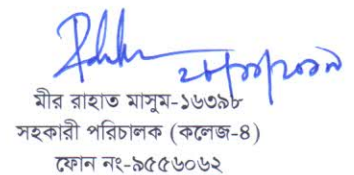 ২৮/১১/২০১৯
মীর রাহাত মাসুম-১৬৩৯৮
সহকারী পরিচালক (কলেজ-৪)
ফোন নং-৯৫৫৬০৬২